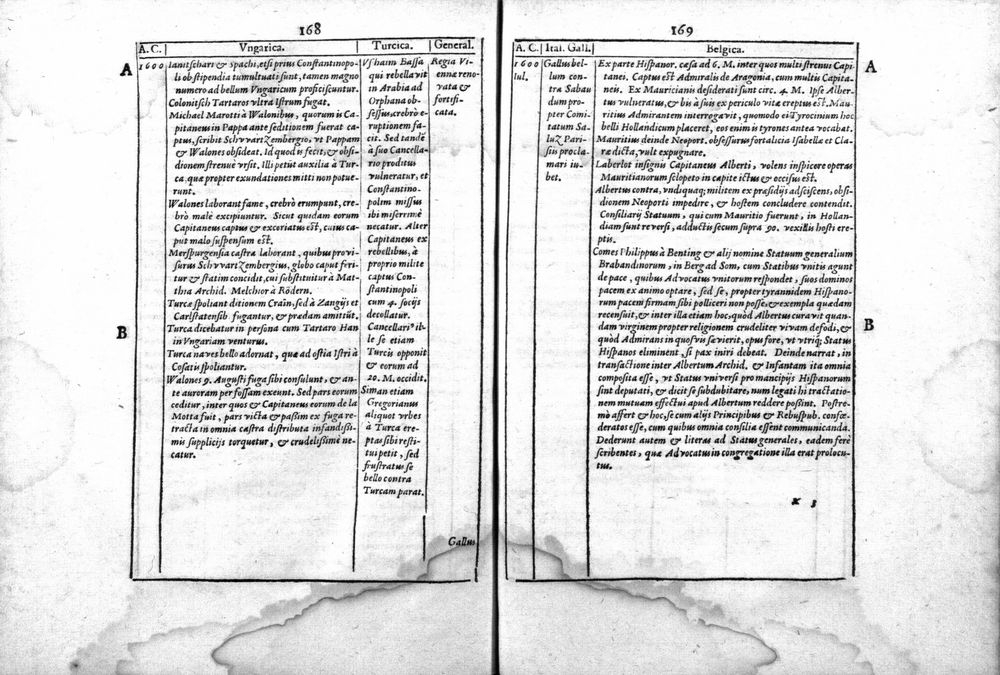 168
A. C. Vngarica. Turcica. General.
A
1600 Ianitschari & Spachi, etsi prius Constantinopo-
li ob stipendia tumultuati sunt, tamen magno
numero ad bellum Vngaricum proficiscuntur.
Colonitsch Tartaros vltra Istrum fugat.
Michael Marotti à Walonibus, quorum is Ca-
pitaneus in Pappa ante seditionem fuerat ca-
ptus, scribit SchvvartZembergio, vt Pappam
& Walones obsideat. Id quod is fecit, & obsi-
dionem strenuè vrsit. Illi petut auxilia à Tur-
ca, quæ propter exundationes mitti non potue-
runt.
Walones laborant fame, crebrò erumpunt, cre-
brò malè excipiuntur. Sicut quidam eorum
Capitaneus captus & excoriatus est, cuius ca-
put malo suspensum est.
Merspurgensia castra laborant, quibus provi-
surus SchvvartZembergius, globo caput feri-
tur & statim concidit, cui substituitur à Mat-
thia Archid. Melchior à Rödern.
Turcæ spoliant ditionem Crain, sed à Zangijs et
Carlstatensib. fugantur, & prædam amittüt.
B
Turca dicebatur in persona cum Tartaro Han
in Vngariam venturus.
Turca naves bello adornat, quæ ad ostia Istri à
Cosatis spoliantur.
Walones 9. Augusti fuga sibi consulunt, & an-
te auroram per fossam exeunt. Sed pars eorum
cæditur, inter quos & Capitaneus eorum de la
Motta fuit, pars victa & passim ex fuga re-
tracta in omnia castra distributa infandissi-
mis supplicijs torquetur, & crudelissimè ne-
catur.
Vshaim Bassa
qui rebellavit
in Arabia ad
Orphana ob-
sessus, crebrò e-
ruptionem fa-
cit. Sed tandē
à suo Cancella-
rio proditus
vulneratur, et
Constantino-
polim missus
ibi miserrimè
necatur. Alter
Capitaneus ex
rebellibus, à
proprio milite
captus Con-
stantinopoli
cum 4. socijs
decollatur.
Cancellari⁹ il-
le se etiam
Turcis opponit
& eorum ad
20. M. occidit.
Siman etiam
Gregorianus
aliquot vrbes
à Turca ere-
ptas sibi resti-
tui petit, sed
frustratus se
bello contra
Turcam parat.
Regia Vi-
ennæ reno-
vata &
fortifi-
cata.
Gallus
169
A. C. Ital. Gall. Belgica.
A
1600
Iul.
Gallus bel-
lum con-
tra Sabau
dum pro-
pter Comi-
tatum Sa-
luZ Pari-
siis procla-
mari iu-
bet.
Ex parte Hispanor. cæsa ad 6. M. inter quos multi strenui Capi-
tanei. Captus est Admiralis de Aragonia, cum multis Capita-
neis. Ex Mauricianis desiderati sunt circ. 4. M. Ipse Alber-
tus vulneratus, & bis à suis ex periculo vitæ ereptus est. Mau-
ritius Admirantem interrogavit, quomodo ei Tyrocinium hoc
belli Hollandicum placeret, eos enim is tyrones antea vocabat.
Mauritius deinde Neoport. obsessurus fortalicia Isabella et Cla-
ræ dicta, vult expugnare.
Laberlot insignis Capitaneus Alberti, volens inspicere operas
Mauritianorum sclopeto in capite ictus & occisus est.
Albertus contra, vndiquaq; militem ex præsidijs adsciscens, obsi-
dionem Neoporti impedire, & hostem concludere contendit.
Consiliarij Statuum, qui cum Mauritio fuerunt, in Hollan-
diam sunt reversi, adductis secum supra 90. vexillis hosti ere-
ptis.
B
Comes Philippus à Benting & alij nomine Statuum generalium
Brabandinorum, in Berg ad Som, cum Statibus vnitis agunt
de pace, quibus Advocatus vnitorum respondet, suos dominos
pacem ex animo optare, sed se, propter tyrannidem Hispano-
rum pacem firmam sibi polliceri non posse, & exempla quædam
recensuit, & inter illa etiam hoc, quòd Albertus curavit quan-
dam virginem propter religionem crudeliter vivam defodi, &
quòd Admirans in quosvis sævierit, opus fore, vt vtriq; Status
Hispanos eliminent, si pax iniri debeat. Deinde narrat, in
transactione inter Albertum Archid. & Infantam ita omnia
composita esse, vt Status vniversi pro mancipijs Hispanorum
sint deputati, & dicit se subdubitare, num legati hi tractatio-
nem mutuam effectui apud Albertum reddere possint. Postre-
mò affert & hoc, se cum alijs Principibus & Rebuspub. confœ-
deratos esse, cum quibus omnia consilia essent communicanda.
Dederunt autem & literas ad Status generales, eadem ferè
scribentes, quæ Advocatus in congregatione illa erat prolocu-
tus.
x 3